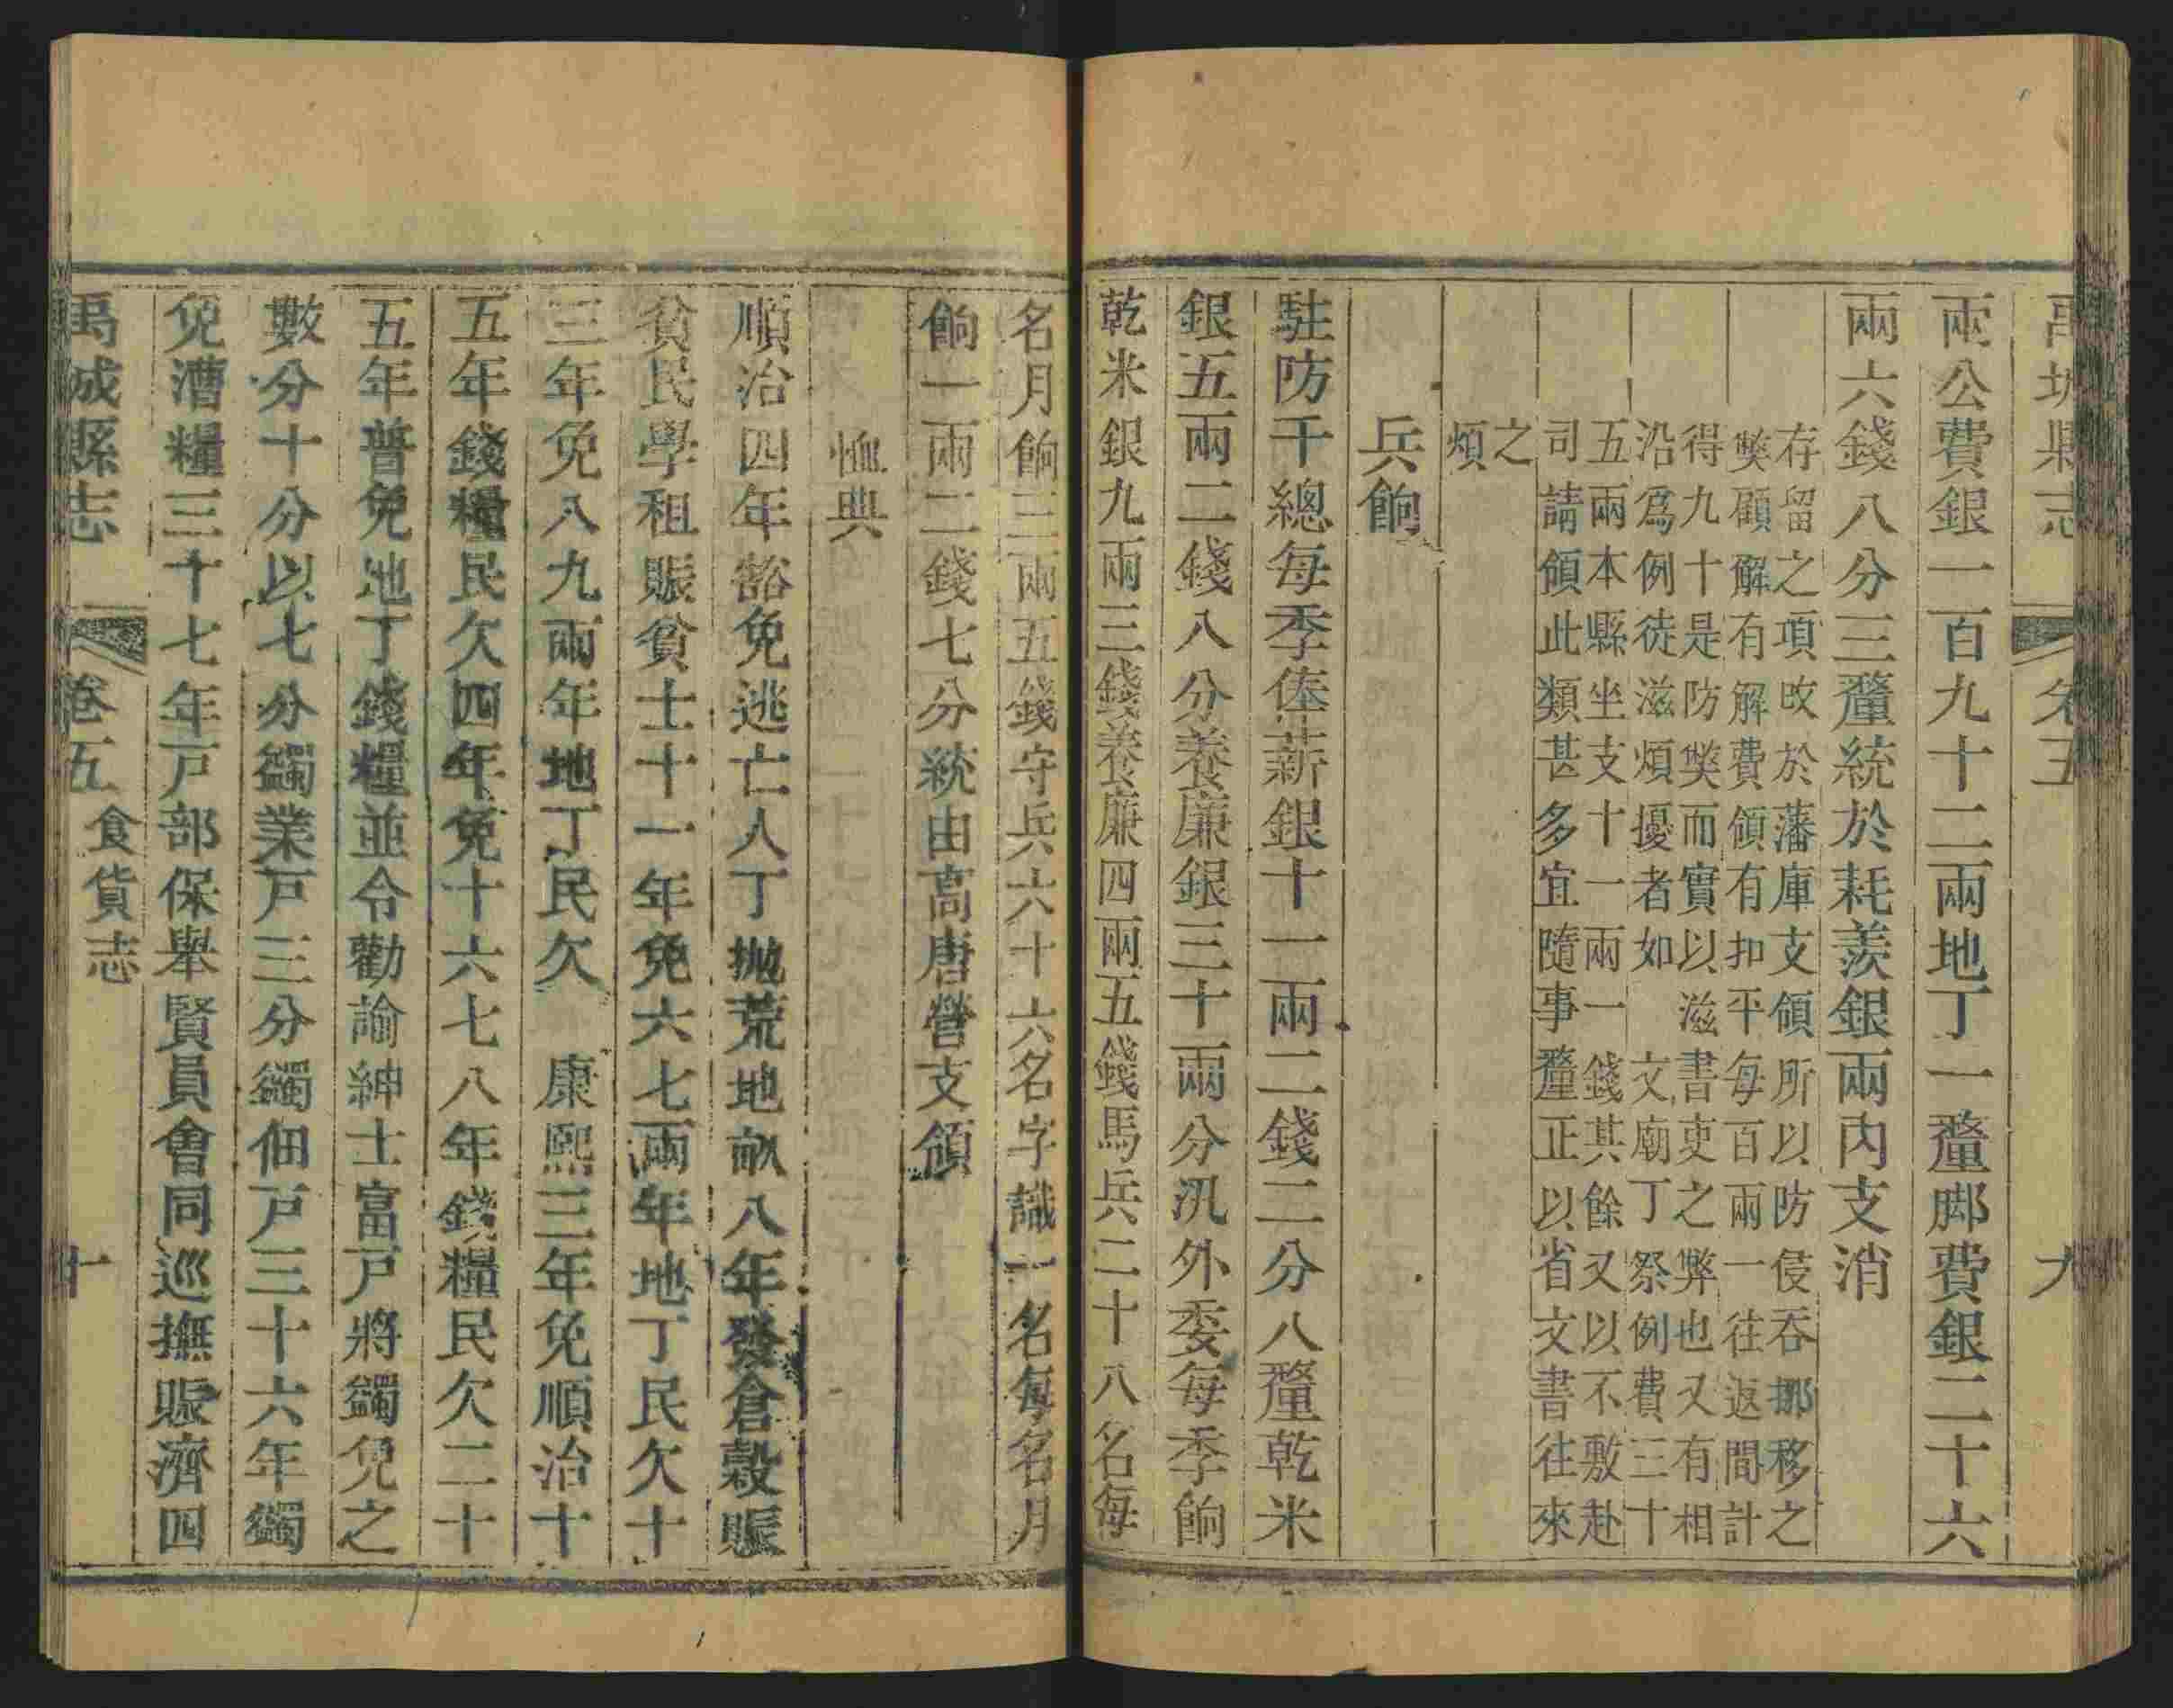 禹城縣志 卷五 九
兩公費銀一百九十二兩地丁一釐脚費銀二十六
兩六錢八分三釐統於耗羨銀兩內支消
存留之項攺於藩庫支領所以防侵吞挪移之
獘顧解有解費領有扣平每百兩一往返間計
得九十是防獘而實以滋書吏之弊也又有相
沿爲例徒滋煩擾者如 文廟丁祭例費三十
五兩本縣坐支十一兩一錢其餘又以不敷赴
司請領此類甚多宜隨事釐正以省文書往來
之
煩
兵餉
駐防千總每季俸薪銀十一兩二錢二分八釐乾米
銀五兩二錢八分養廉銀三十兩分汛外委每季餉
乾米銀九兩三錢養廉四兩五錢馬兵二十八名每
名月餉二兩五錢守兵六十六名字識一名每名月
餉一兩二錢七分統由高唐營支領
恤典
順治四年豁免逃亡人丁拋荒地畝八年發倉穀賑
貧民學租賑貧士十一年免六七兩年地丁民欠十
三年免八九兩年地丁民欠 康熙三年免順治十
五年錢糧民欠四年免十六七八年錢糧民欠二十
五年普免地丁錢糧並令勸諭紳士富戸將蠲免之
數分十分以七分蠲業戸三分蠲佃戸三十六年蠲
免漕糧三十七年戸部保舉賢員會同巡撫賑濟四
禹城縣志 卷五 食貨志 十